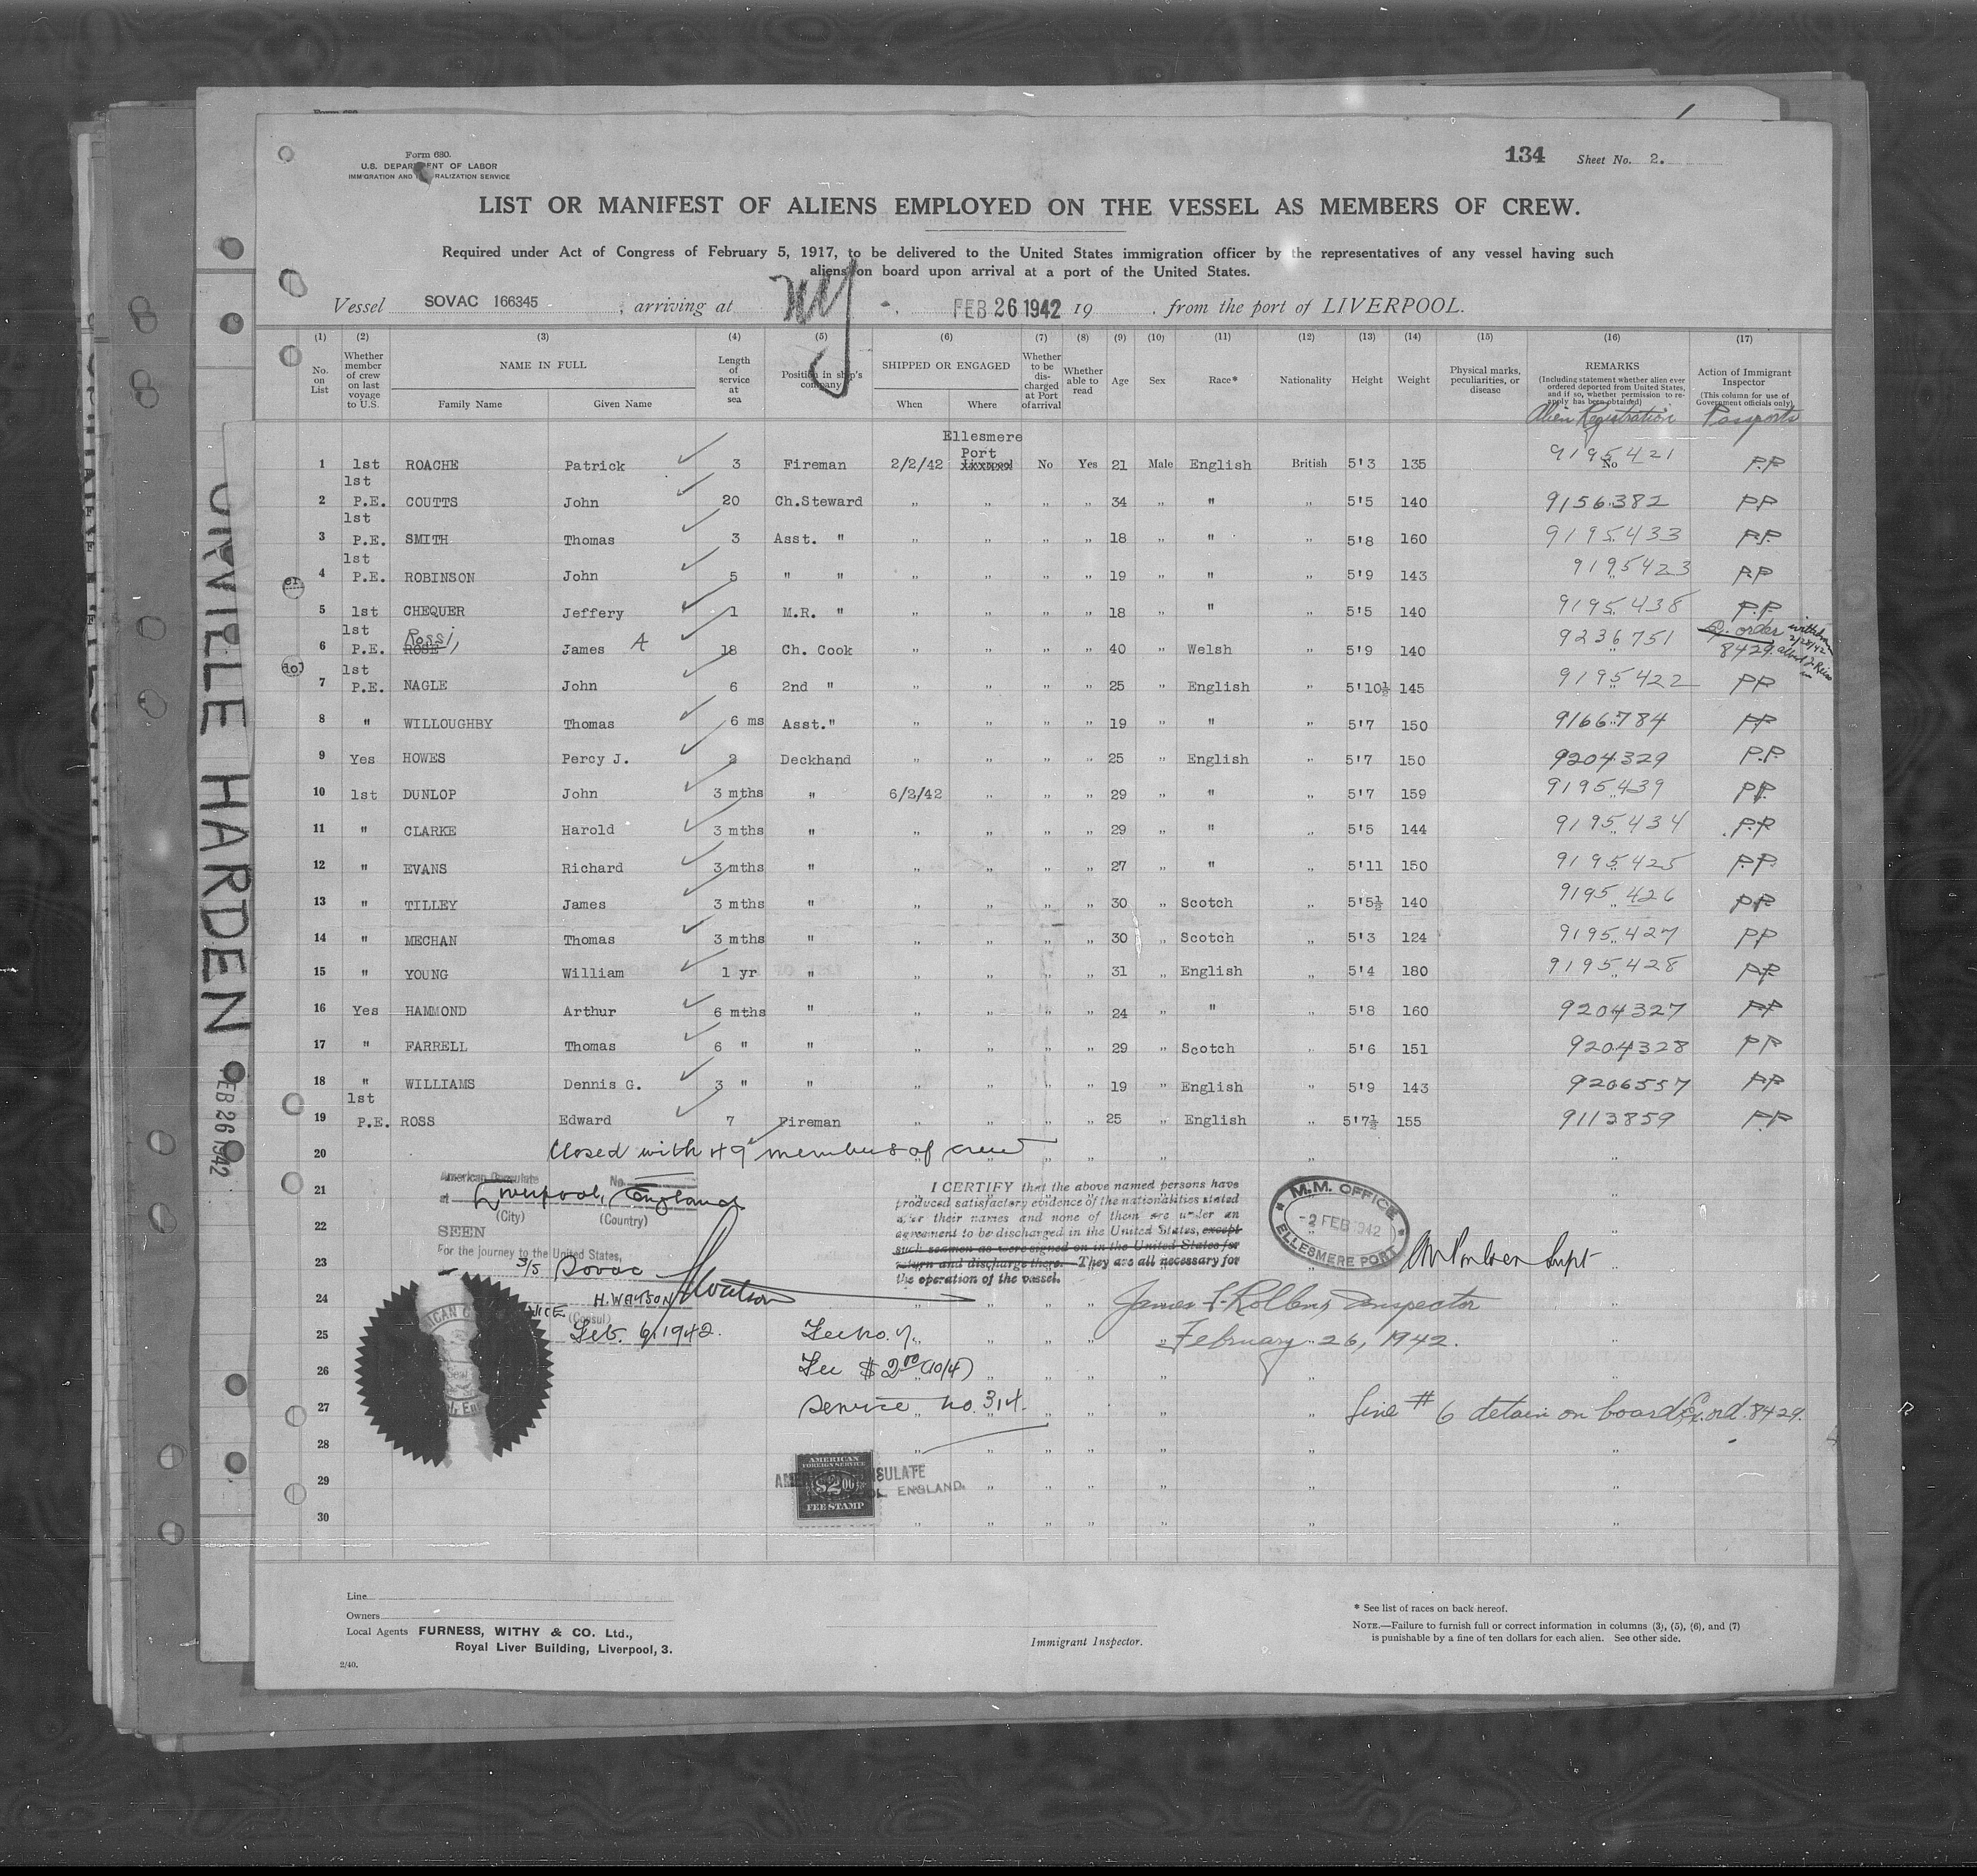 134 Sheet No. 2.
Form 680.
U.S. DEPARTMENT OF LABOR
IMMIGRATION AND NATURALIZATION SERVICE
LIST OR MANIFEST OF ALIENS EMPLOYED ON THE VESSEL AS MEMBERS OF CREW.
Required under Act of Congress of February 5, 1917, to be delivered to the United States immigration officer by the representatives of any vessel having such
aliens on board upon arrival at a port of the United States.
Vessel SOVAC 166345 , arriving at NY , FEB 26 1942 19 , from the port of LIVERPOOL.
(1) (2) (3) (4) (5) (6) (7) (8) (9) (10) (11) (12) (13) (14) (15) (16) (17)
No. on List
Whether member of crew on last voyage to U.S.
NAME IN FULL
Family Name Given Name
Length of service at sea
Position in ship's company
SHIPPED OR ENGAGED
When Where
Whether to be discharged at Port of arrival
Whether able to read
Age
Sex
Race*
Nationality
Height
Weight
Physical marks, peculiarities, or disease
REMARKS
(Including statement whether alien ever ordered deported from United States, and if so, whether permission to re-apply has been obtained)
Alien Registration
Action of Immigrant Inspector
(This column for use of Government officials only)
Passports
Ellesmere
Port
1 1st ROACHE Patrick 3 Fireman 2/2/42 Liverpool No Yes 21 Male English British 5'3 135 No 9195421 P.P
2 1st P.E. COUTTS John 20 Ch.Steward " " " " 34 " " " 5'5 140 9156382 PP
3 1st P.E. SMITH Thomas 3 Asst. " " " " " 18 " " " 5'8 160 9195433 P.P.
4 1st P.E. ROBINSON John 5 " " " " " " 19 " " " 5'9 143 9195423 P.P
5 1st CHEQUER Jeffery 1 M.R. " " " " " 18 " " " 5'5 140 9195438 P.P.
6 1st P.E. ROSE Rossi, James A 18 Ch. Cook " " " " 40 " Welsh " 5'9 140 9236751 Ex. order 8429. withdrawn 2/28/42
7 1st P.E. NAGLE John 6 2nd " " " " " 25 " English " 5'10½ 145 9195422 PP
8 " WILLOUGHBY Thomas 6 ms Asst." " " " " 19 " " " 5'7 150 9166784 PP
9 Yes HOWES Percy J. 2 Deckhand " " " " 25 " English " 5'7 150 9204329 P.P.
10 1st DUNLOP John 3 mths " 6/2/42 " " " 29 " " " 5'7 159 9195439 PP.
11 " CLARKE Harold 3 mths " " " " " 29 " " " 5'5 144 9195434 P.P
12 " EVANS Richard 3 mths " " " " " 27 " " " 5'11 150 9195425 P.P.
13 " TILLEY James 3 mths " " " " " 30 " Scotch " 5'5½ 140 9195426 PP
14 " MECHAN Thomas 3 mths " " " " " 30 " Scotch " 5'3 124 9195427 PP
15 " YOUNG William 1 yr " " " " " 31 " English " 5'4 180 9195428 PP
16 Yes HAMMOND Arthur 6 mths " " " " " 24 " " " 5'8 160 9204327 PP
17 " FARRELL Thomas 6 " " " " " " 29 " Scotch " 5'6 151 9204328 PP
18 " WILLIAMS Dennis G. 3 " " " " " " 19 " English " 5'9 143 9206557 PP
19 1st P.E. ROSS Edward 7 Fireman " " " " 25 " English " 5'7½ 155 9113859 P.P
20 Closed with 49 members of crew
21
22
23
24
25
26
27
28
29
30
American Consulate No.
at Liverpool, England
(City) (Country)
SEEN
For the journey to the United States,
S/S Sovac
H. WATSON HWatson
VICE (Consul)
Feb. 6, 1942.
I CERTIFY that the above named persons have
produced satisfactory evidence of the nationalities stated
after their names and none of them are under an
agreement to be discharged in the United States, except
such seamen as were signed on in the United States for
return and discharge there. They are all necessary for
the operation of the vessel.
M.M. OFFICE
-2 FEB 1942
ELLESMERE PORT
Supt
James F. Rollins Inspector
February 26, 1942.
Fee $2.00 (10/4)
Service no. 314.
Line # 6 detain on board Ex. ord. 8429.
AMERICAN
FOREIGN SERVICE
$2.00
FEE STAMP
AMERICAN CONSULATE
LIVERPOOL ENGLAND.
Line
Owners
Local Agents FURNESS, WITHY & CO. Ltd.,
Royal Liver Building, Liverpool, 3.
2/40.
Immigrant Inspector.
* See list of races on back hereof.
NOTE.—Failure to furnish full or correct information in columns (3), (5), (6), and (7)
is punishable by a fine of ten dollars for each alien. See other side.
ORVILLE HARDEN FEB 26 1942